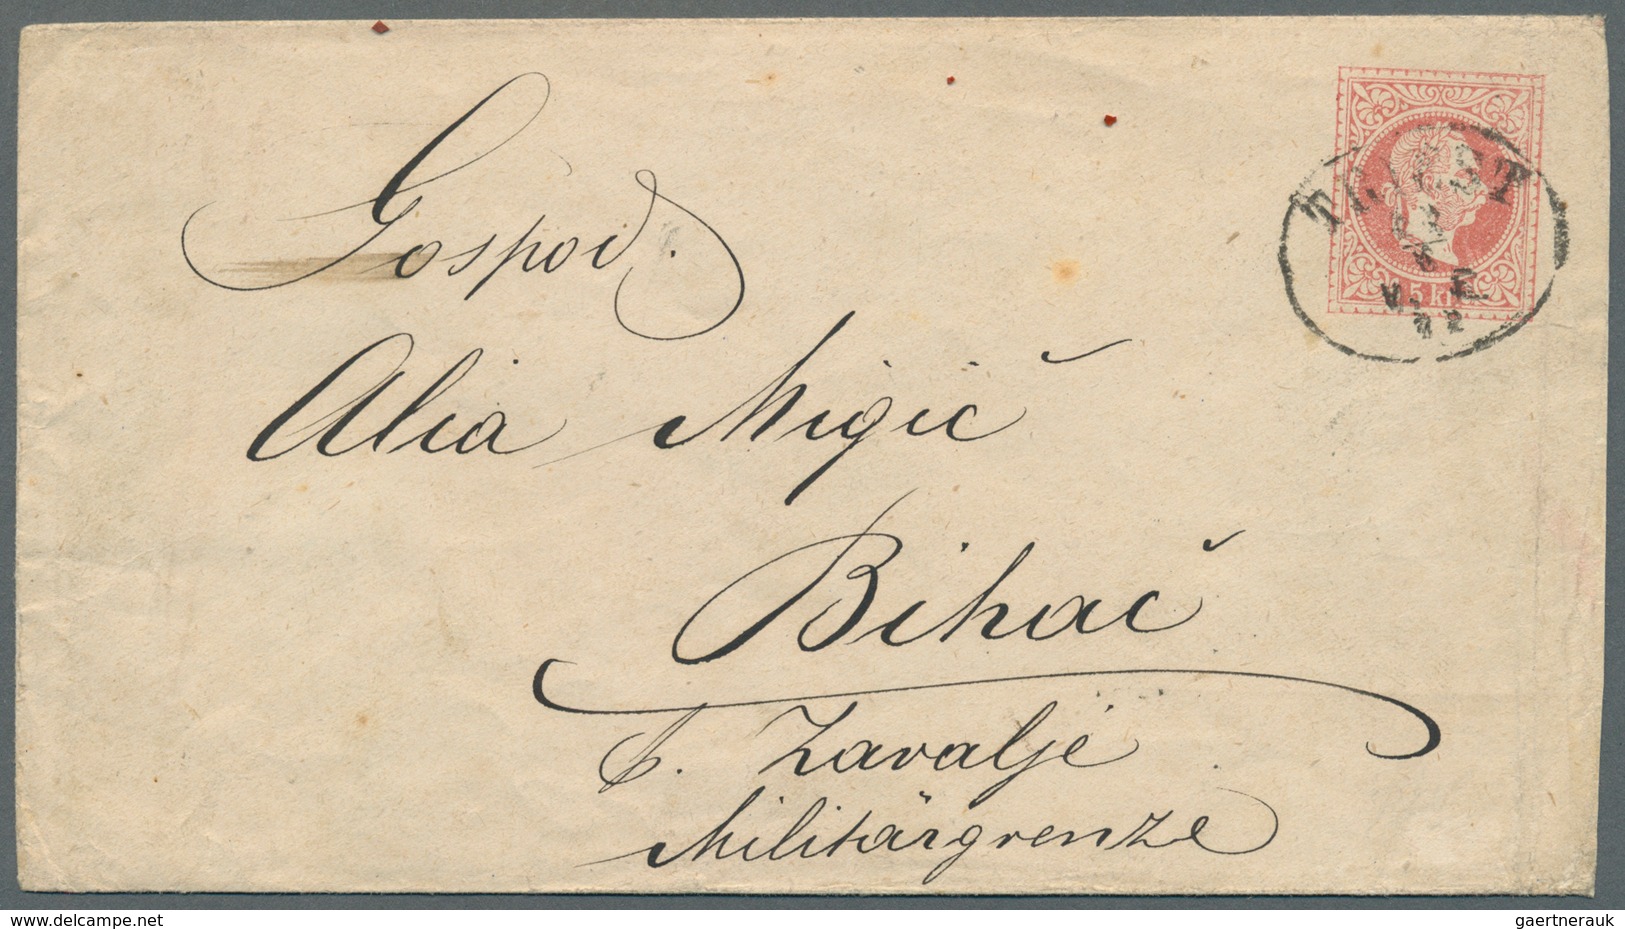 Gospod.
Alia Migič
Bihač
p. Zavalje
Militärgrenze
5 Kr.
www.delcampe.net
gaertnerauk